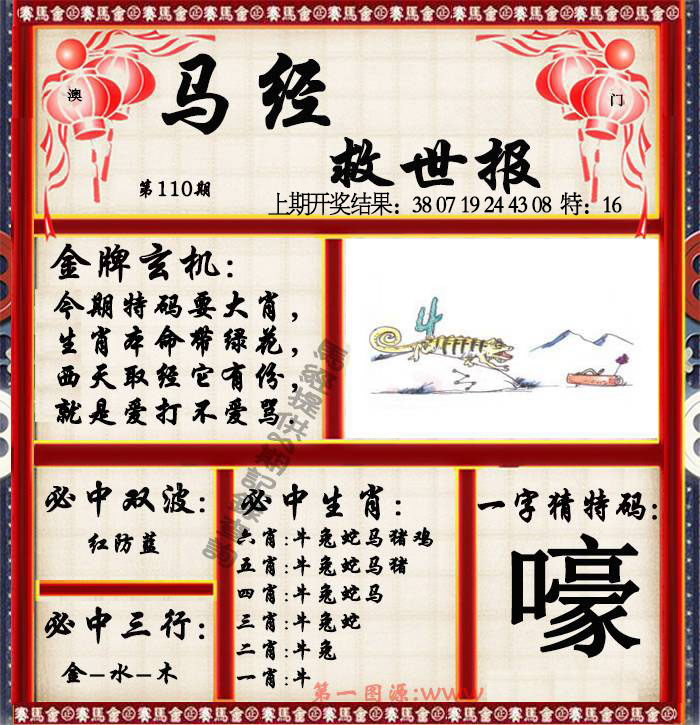 賽馬會 賽馬會 賽馬會 賽馬會 賽馬會 賽馬會 賽馬會
澳
门
马经
救世报
第110期
上期开奖结果：38 07 19 24 43 08 特：16
金牌玄机：
今期特码要大肖，
生肖本命带绿花，
西天取经它有份，
就是爱打不爱骂.
必中双波：
红防蓝
必中三行：
金-水-木
必中生肖：
六肖：牛兔蛇马猪鸡
五肖：牛兔蛇马猪
四肖：牛兔蛇马
三肖：牛兔蛇
二肖：牛兔
一肖：牛
一字猜特码：
嚎
第一图源:www